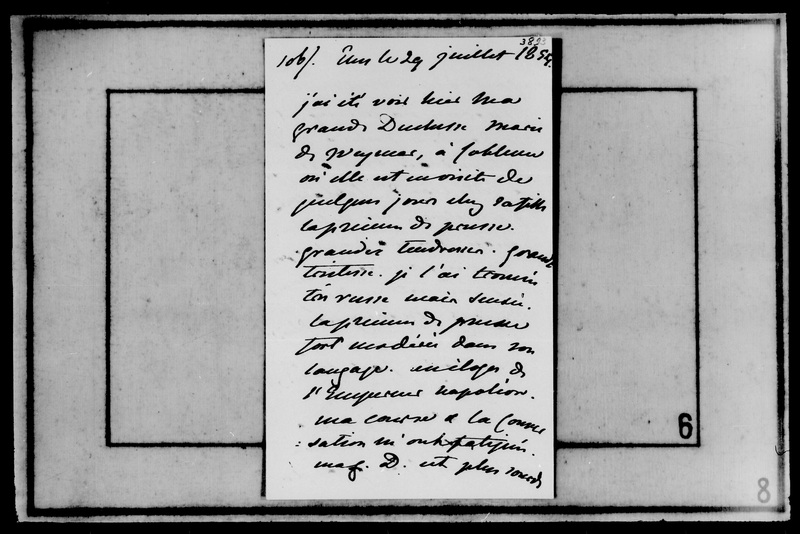 106/. Ems le 29 juillet 1854.
j'ai été voir hier Ma
grande Duchesse Marie
de Weymar, à Coblence
où elle est en visite de
quelques jours chez sa fille
la princesse de prusse.
grandes tendresses. grande
tristesse. je l'ai trouvée
très russe mais sensée.
la princesse de prusse
fort modérée dans son
langage. en éloges de
l'Empereur napoléon.
ma course & la Conver
:sation m'ont fatiguée.
D. est plus sourde
6
8